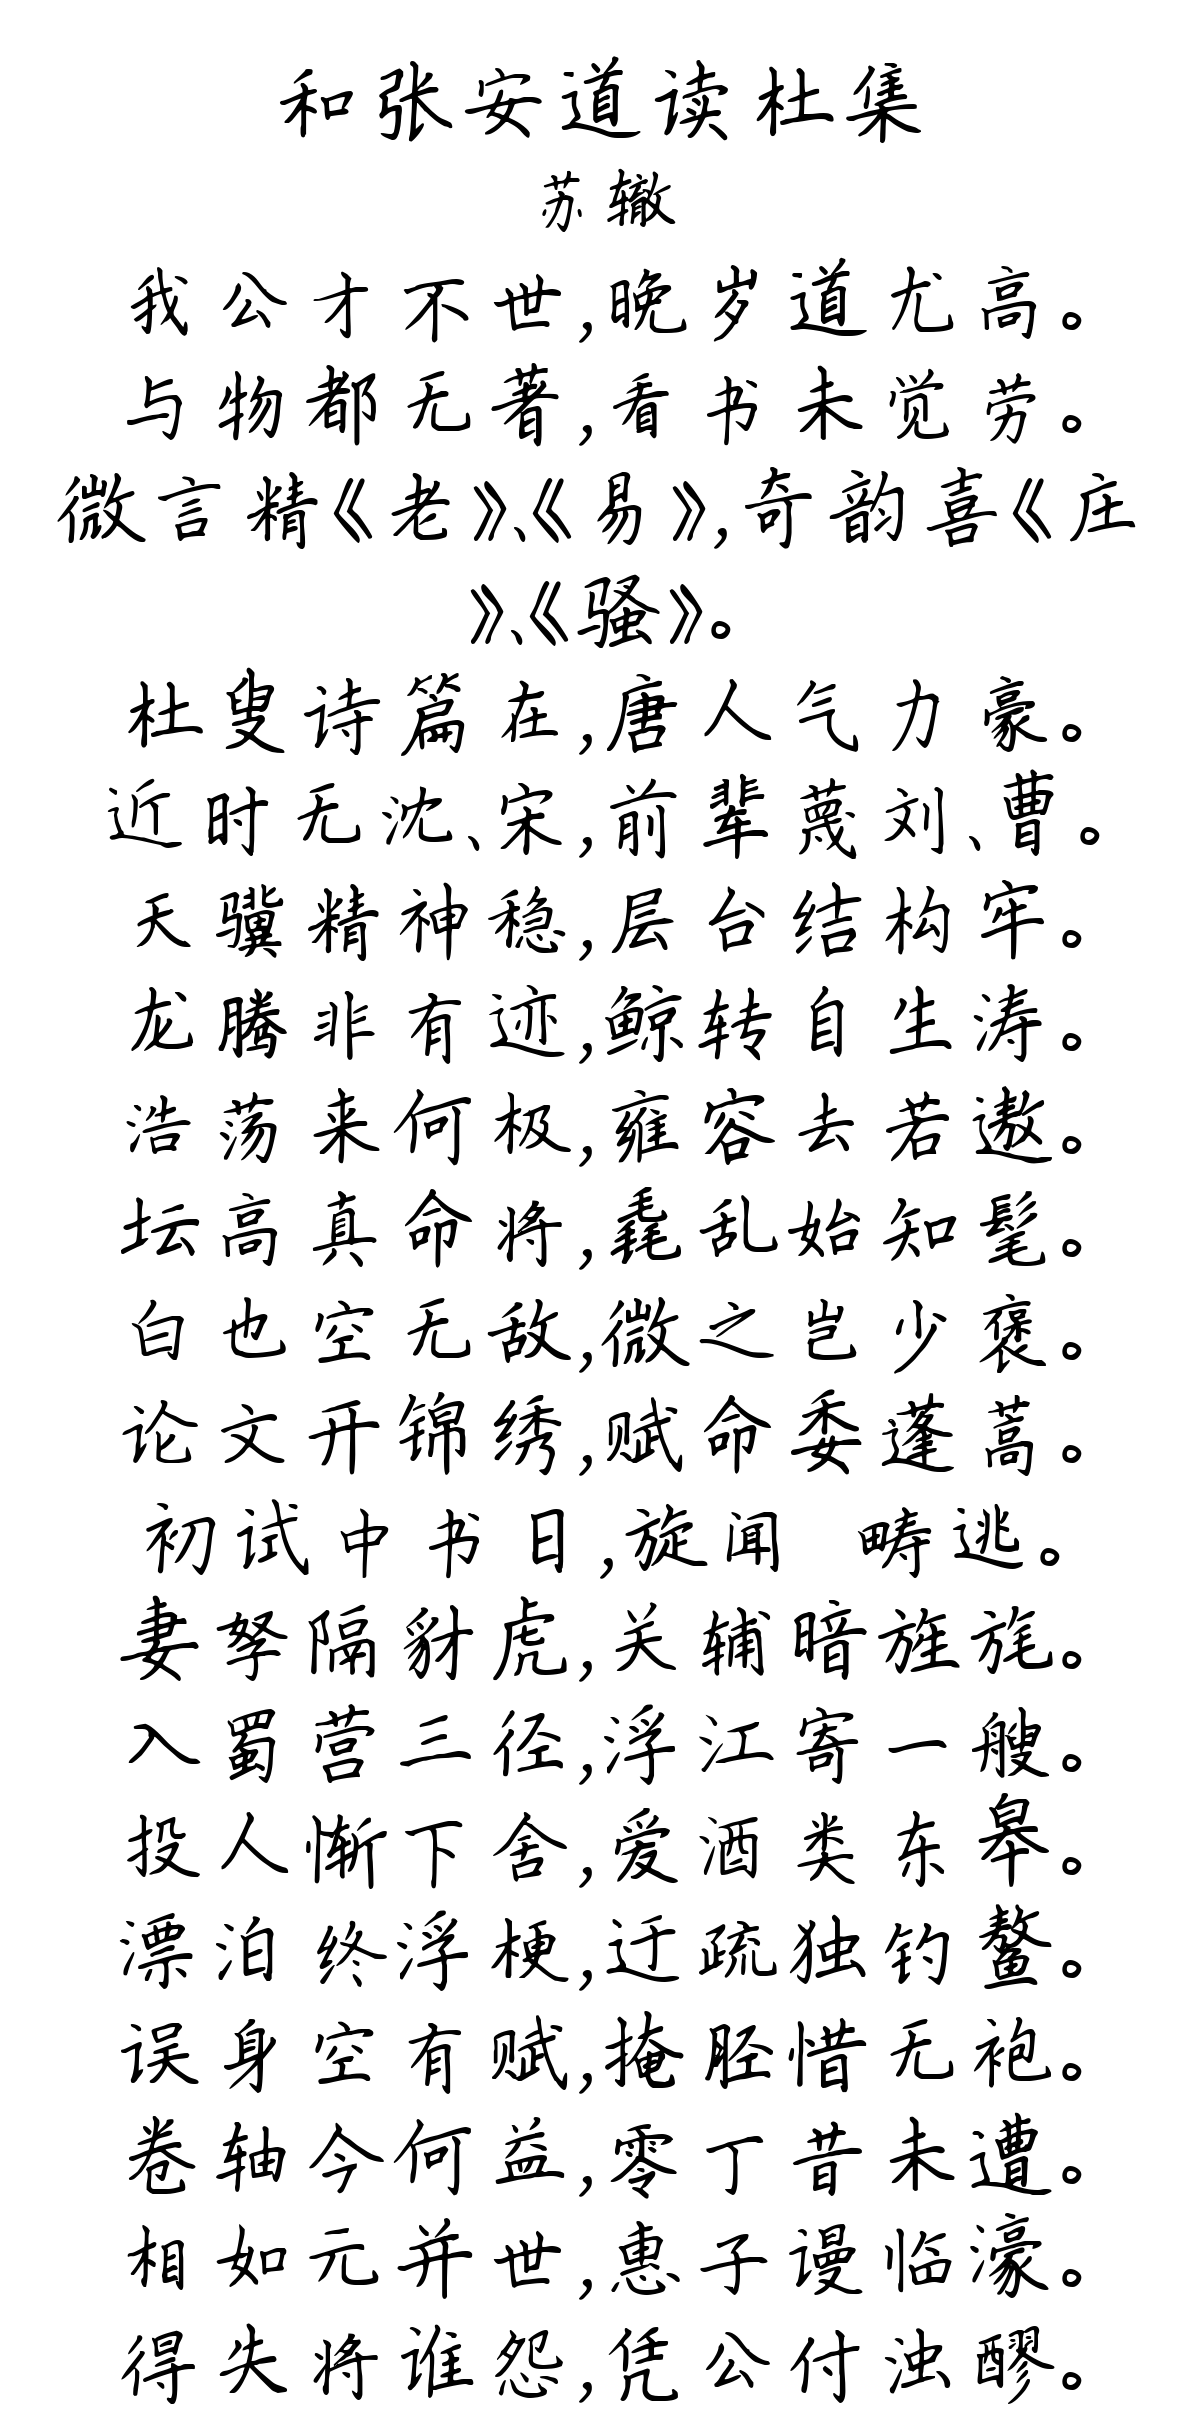 和张安道读杜集
苏辙
我公才不世,晚岁道尤高。
与物都无著,看书未觉劳。
微言精《老》、《易》,奇韵喜《庄
》、《骚》。
杜叟诗篇在,唐人气力豪。
近时无沈、宋,前辈蔑刘、曹。
天骥精神稳,层台结构牢。
龙腾非有迹,鲸转自生涛。
浩荡来何极,雍容去若遨。
坛高真命将,毳乱始知髦。
白也空无敌,微之岂少褒。
论文开锦绣,赋命委蓬蒿。
初试中书日,旋闻 畴逃。
妻孥隔豺虎,关辅暗旌旄。
入蜀营三径,浮江寄一艘。
投人惭下舍,爱酒类东皋。
漂泊终浮梗,迂疏独钓鳌。
误身空有赋,掩胫惜无袍。
卷轴今何益,零丁昔未遭。
相如元并世,惠子谩临濠。
得失将谁怨,凭公付浊醪。